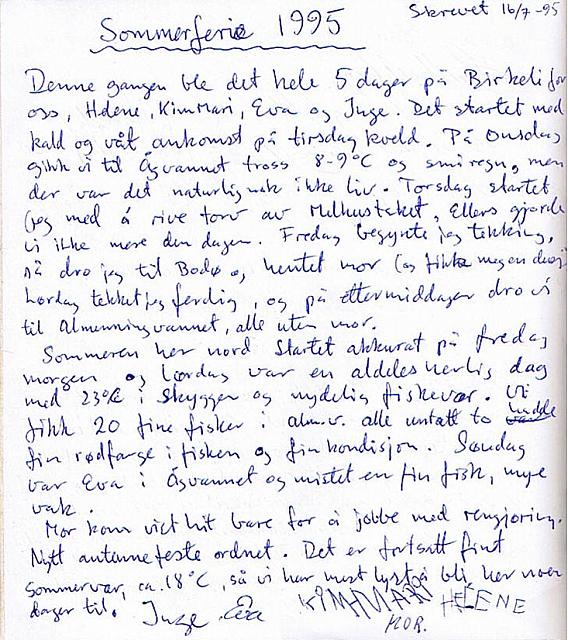 Skrevet 16/7-95
Sommerferie 1995
Denne gangen ble det hele 5 dager på Birkeli for
oss, Helene, KimMari, Eva og Inge. Det startet med
kald og våt ankomst på tirsdag kveld. På Onsdag
gikk vi til Ågvannet tross 8-9°C og småregn, men
der var det naturlig nok ikke liv. Torsdag startet
jeg med å rive torv av Melhustaket, Ellers gjorde
vi ikke mere den dagen. Fredag begynte jeg tekking,
så dro jeg til Bodø og hentet mor (og fikk
Lørdag tekket jeg ferdig, og på ettermiddagen dro vi
til Almenningvannet, alle uten mor.
Sommeren her nord startet akkurat på fredag
morgen og lørdag var en aldeles herlig dag
med 23°C i skyggen og nydelig fiskevær. Vi
fikk 20 fine fisker i alm.v. alle untatt to hadde
fin rødfarge i fisken og fin kondisjon. Søndag
var Eva i Ågvannet og mistet en fin fisk, mye
vak.
Mor kom visst hit bare for å jobbe med rengjøring.
Nytt antennefeste ordnet. Det er fortsatt fint
sommervær, ca. 18°C, så vi har mest lyst å bli her noen
dager til. Inge Eva KIMMARI HELENE
MOR.